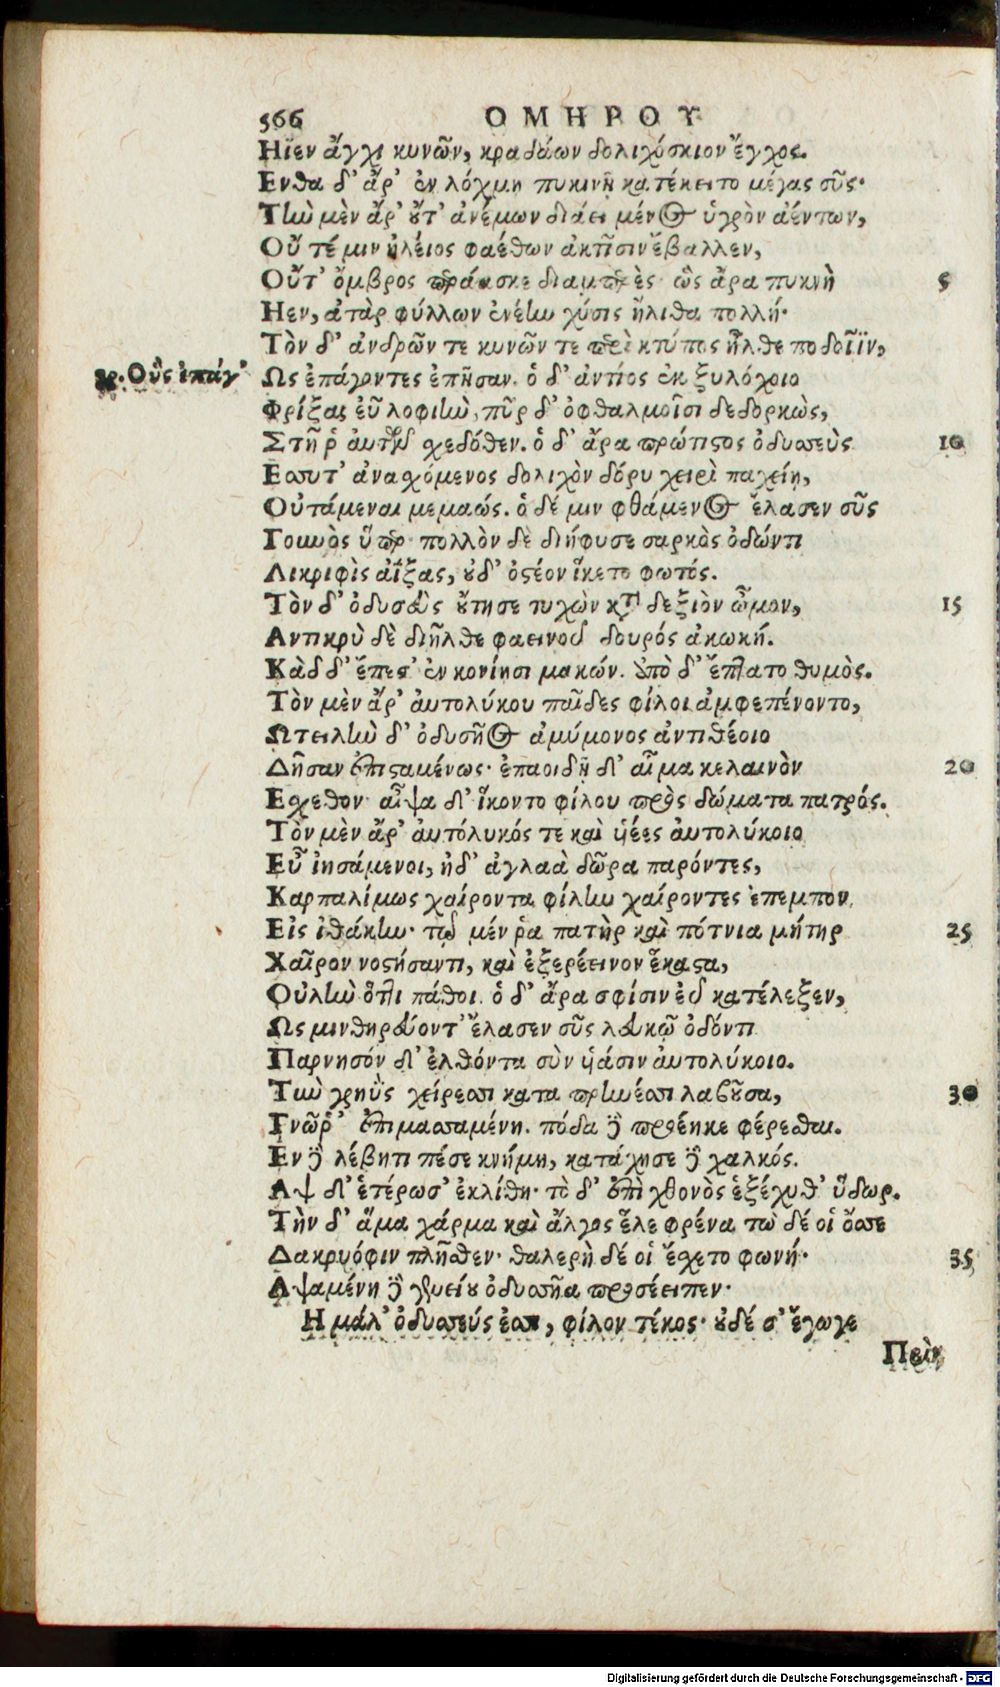 566 ΟΜΗΡΟΥ
Ηϊεν ἄγχι κυνῶν, κραδάων δολιχόσκιον ἔγχος.
Ενθα δ' ἄρ' ἐν λόχμῃ πυκινῇ κατέκειτο μέγας σῦς·
Τὴν μὲν ἄρ' οὔτ' ἀνέμων διάει μένος ὑγρὸν ἀέντων,
Οὔ τέ μιν ἠλέιος φαέθων ἀκτῖσιν ἔβαλλεν,
Οὔτ' ὄμβρος περάασκε διαμπερὲς· ὣς ἄρα πυκνὴ 5
Ηεν, ἀτὰρ φύλλων ἐνέην χύσις ἤλιθα πολλή·
Τὸν δ' ἀνδρῶν τε κυνῶν τε περὶ κτύπος ἦλθε ποδοῖϊν,
γρ. Οὓς ἐπάγ' Ως ἐπάγοντες ἐπῇσαν. ὁ δ' ἀντίος ἐκ ξυλόχοιο
Φρίξας εὖ λοφιὴν, πῦρ δ' ὀφθαλμοῖσι δεδορκὼς,
Στῆ ῥ' αὐτῶν σχεδόθεν. ὁ δ' ἄρα πρώτιστος ὀδυσσεὺς 10
Εσσυτ' ἀνασχόμενος δολιχὸν δόρυ χειρὶ παχείῃ,
Οὐτάμεναι μεμαώς. ὁ δέ μιν φθάμενος ἔλασεν σῦς
Γουνὸς ὕπερ· πολλὸν δὲ διήφυσε σαρκὸς ὀδόντι
Λικριφὶς ἀΐξας, οὐδ' ὀστέον ἵκετο φωτός.
Τὸν δ' ὀδυσεὺς οὔτησε τυχὼν κατὰ δεξιὸν ὦμον, 15
Αντικρὺ δὲ διῆλθε φαεινοῦ δουρός ἀκωκή.
Κὰδ δ' ἔπεσ' ἐν κονίῃσι μακών. ἀπὸ δ' ἔπτατο θυμὸς.
Τὸν μὲν ἄρ' αὐτολύκου παῖδες φίλοι ἀμφεπένοντο,
Ωτειλὴν δ' ὀδυσῆος ἀμύμονος ἀντιθέοιο
Δῆσαν ἐπισταμένως· ἐπαοιδῇ δ' αἷμα κελαινὸν 20
Εσχεθον· αἶψα δ' ἵκοντο φίλου πρὸς δώματα πατρός.
Τὸν μὲν ἄρ' αὐτόλυκός τε καὶ υἱέες αὐτολύκοιο
Εὖ ἰησάμενοι, ἠδ' ἀγλαὰ δῶρα παρόντες,
Καρπαλίμως χαίροντα φίλην χαίροντες ἔπεμπον
Εἰς ἰθάκην· τοῦ μέν ῥα πατὴρ καὶ πότνια μήτηρ 25
Χαῖρον νοστήσαντι, καὶ ἐξερέεινον ἕκαστα,
Οὐλὴν ὅττι πάθοι. ὁ δ' ἄρα σφίσιν εὖ κατέλεξεν,
Ως μιν θηρεύοντ' ἔλασεν σῦς λευκῷ ὀδόντι
Παρνησόν δ' ἐλθόντα σὺν υἱάσιν αὐτολύκοιο.
Τὴν γρηῢς χείρεσσι καταπρηνέσσι λαβοῦσα, 30
Γνῶ ῥ' ἐπιμασσαμένη. πόδα δὲ προέηκε φέρεσθαι.
Εν δὲ λέβητι πέσε κνήμη, κατάχησε δὲ χαλκός.
Αψ δ' ἑτέρωσ' ἐκλίθη· τὸ δ' ἐπὶ χθονὸς ἐξέχυθ' ὕδωρ.
Τὴν δ' ἅμα χάρμα καὶ ἄλγος ἕλε φρένα τὼ δέ οἱ ὄσσε
Δακρυόφιν πλῆσθεν· θαλερὴ δέ οἱ ἔσχετο φωνή· 35
Αψαμένη δὲ γενείου ὀδυσσῆα προσέειπεν·
Η μάλ' ὀδυσσεύς ἐσσι, φίλον τέκος· οὐδέ σ' ἔγωγε
Πρὶν